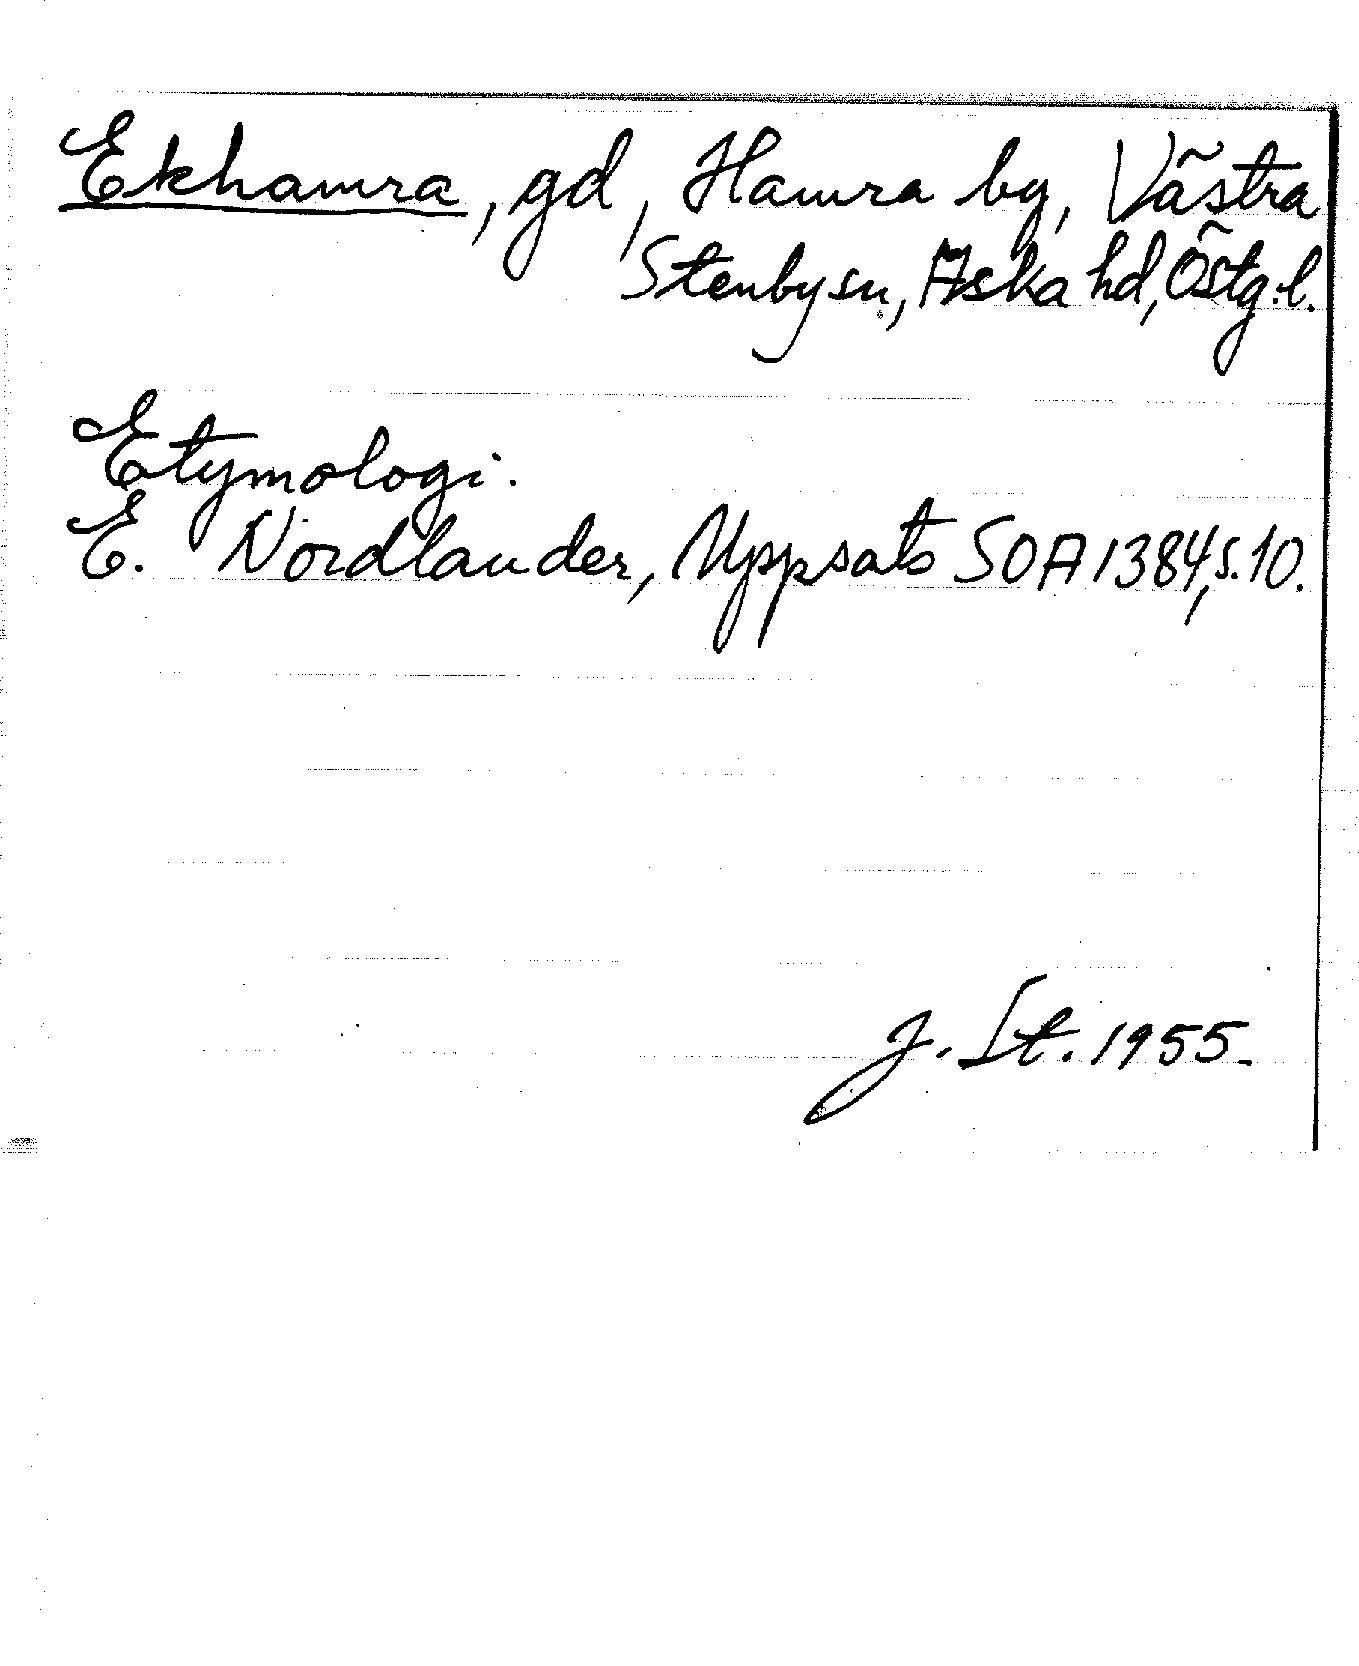 Ekhamra, gd, Hamra by, Västra
Stenby sn, Aska hd, Östg. l.
Etymologi.
E. Nordlander, Uppsats SOA 1384, s. 10.
J. St. 1955.